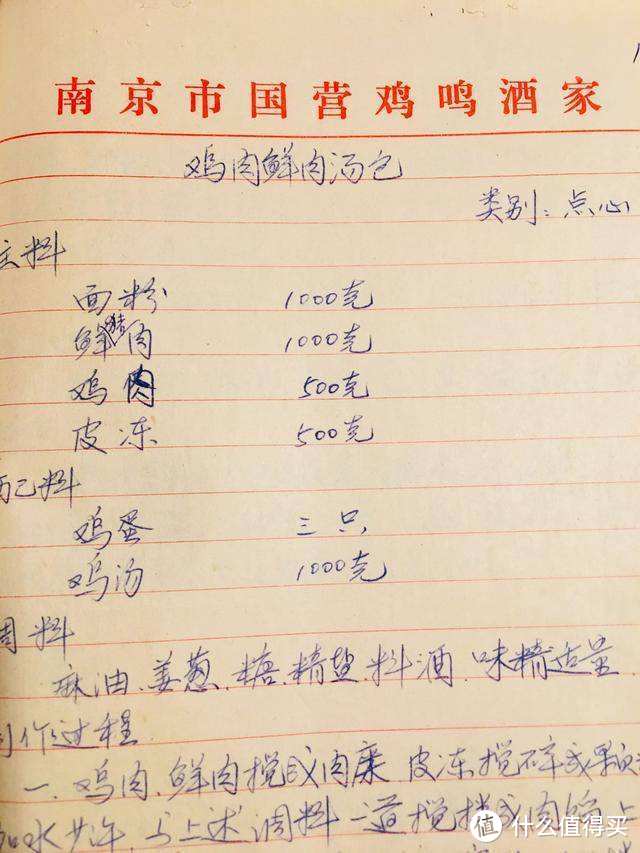 南京市国营鸡鸣酒家
鸡肉鲜肉汤包
类别:点心
主料
面粉 1000克
鲜猪肉 1000克
鸡肉 500克
皮冻 500克
配料
鸡蛋 三只
鸡汤 1000克
调料
麻油、姜葱、糖、精盐、料酒、味精适量
制作过程
一、鸡肉、鲜肉搅成肉糜、皮冻搅碎成颗粒
加水少许、与上述调料一道搅拌成肉馅、上
值 什么值得买